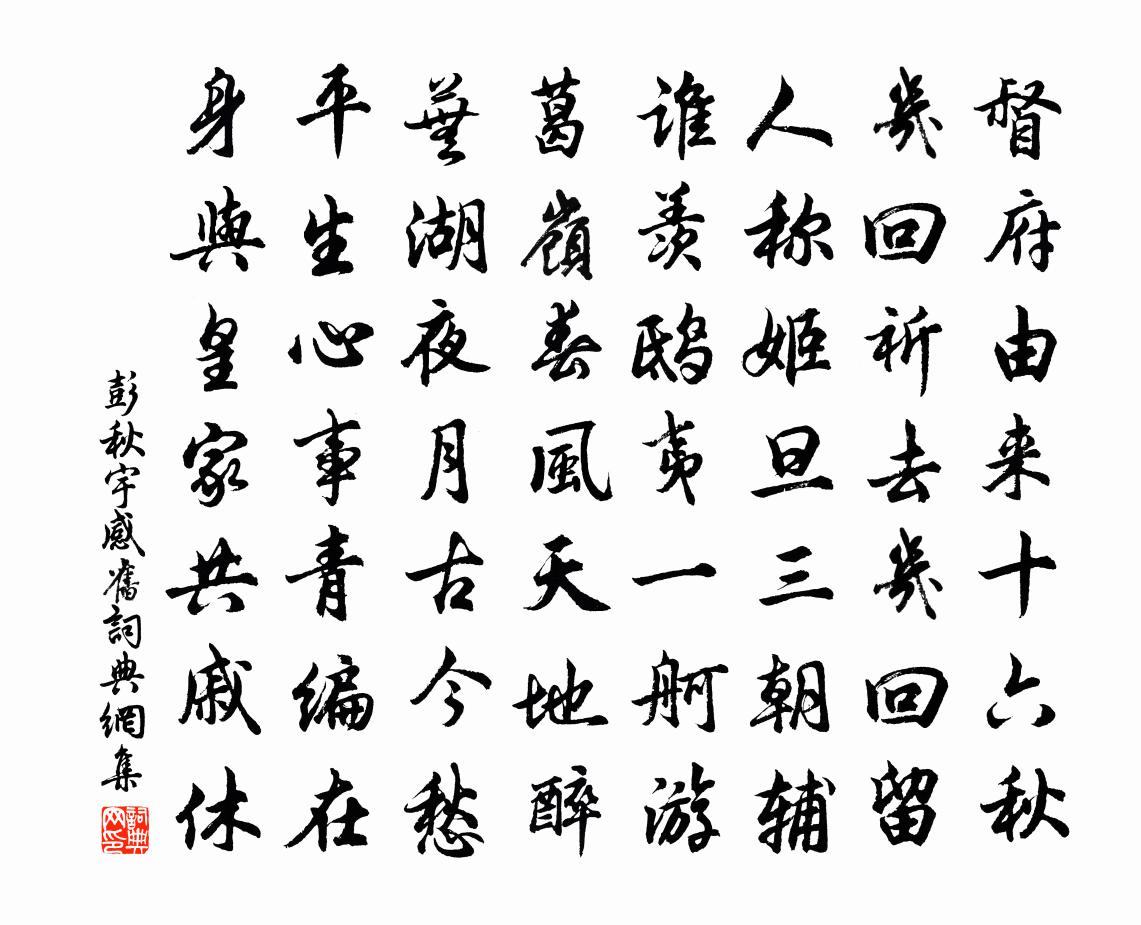 督府由来十六秋
幾回祈去幾回留
人称姬旦三朝辅
谁羡鸱夷一舸游
葛嶺春風天地醉
蕪湖夜月古今愁
平生心事青编在
身與皇家共戚休
彭秋宇感舊詞典網集
詞典网印